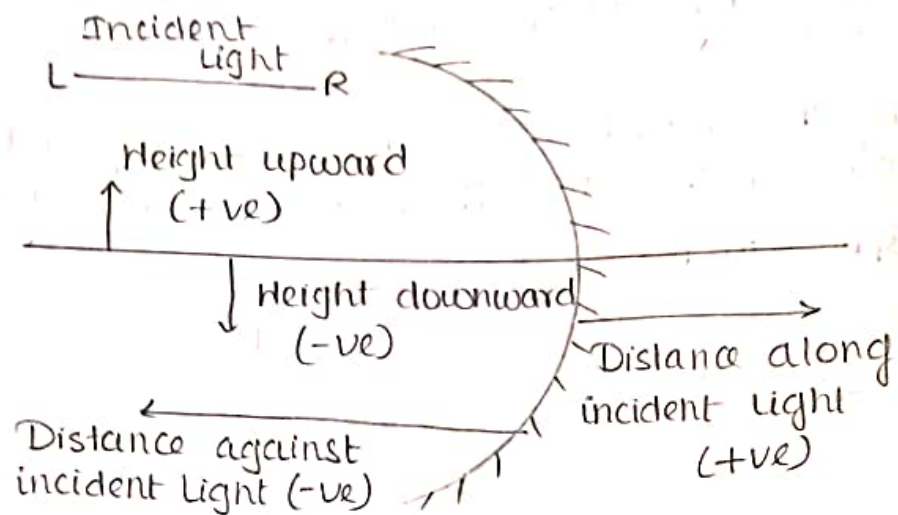 Incident
Light
L R
Height upward
(+ve)
Height downward
(-ve)
Distance along
incident light
(+ve)
Distance against
incident Light (-ve)